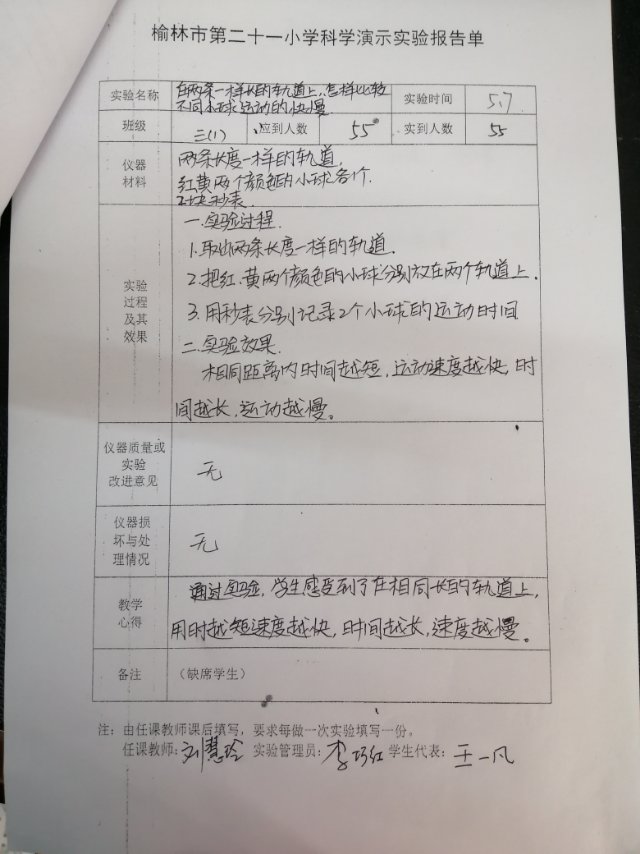 榆林市第二十一小学科学演示实验报告单
实验名称
在两条一样长的轨道上,怎样比较
不同小球运动的快慢
实验时间
5.7
班级
三(1)
应到人数
55
实到人数
55
仪器
材料
两条长度一样的轨道,
红黄两个颜色的小球各1个.
2块秒表.
实验
过程
及其
效果
一.实验过程
1.取出两条长度一样的轨道.
2.把红.黄两个颜色的小球分别放在两个轨道上.
3.用秒表分别记录2个小球的运动时间
二.实验效果.
相同距离内时间越短,运动速度越快,时
间越长,运动越慢。
仪器质量或
实验
改进意见
无
仪器损
坏与处
理情况
无
教学
心得
通过实验,学生感受到了在相同长的轨道上,
用时越短速度越快,时间越长,速度越慢。
备注
(缺席学生)
注:由任课教师课后填写,要求每做一次实验填写一份。
任课教师:刘慧玲 实验管理员:李巧红 学生代表:王一凡